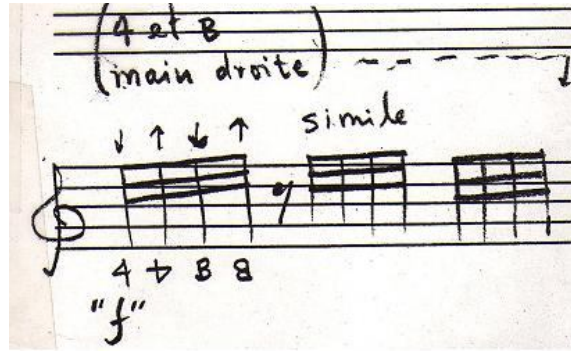 (4 et B
main droite)
simile
4 4 B B
"f"